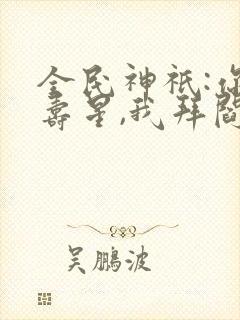 全民神祇:你
寿星,我拜阎
吴鹏波